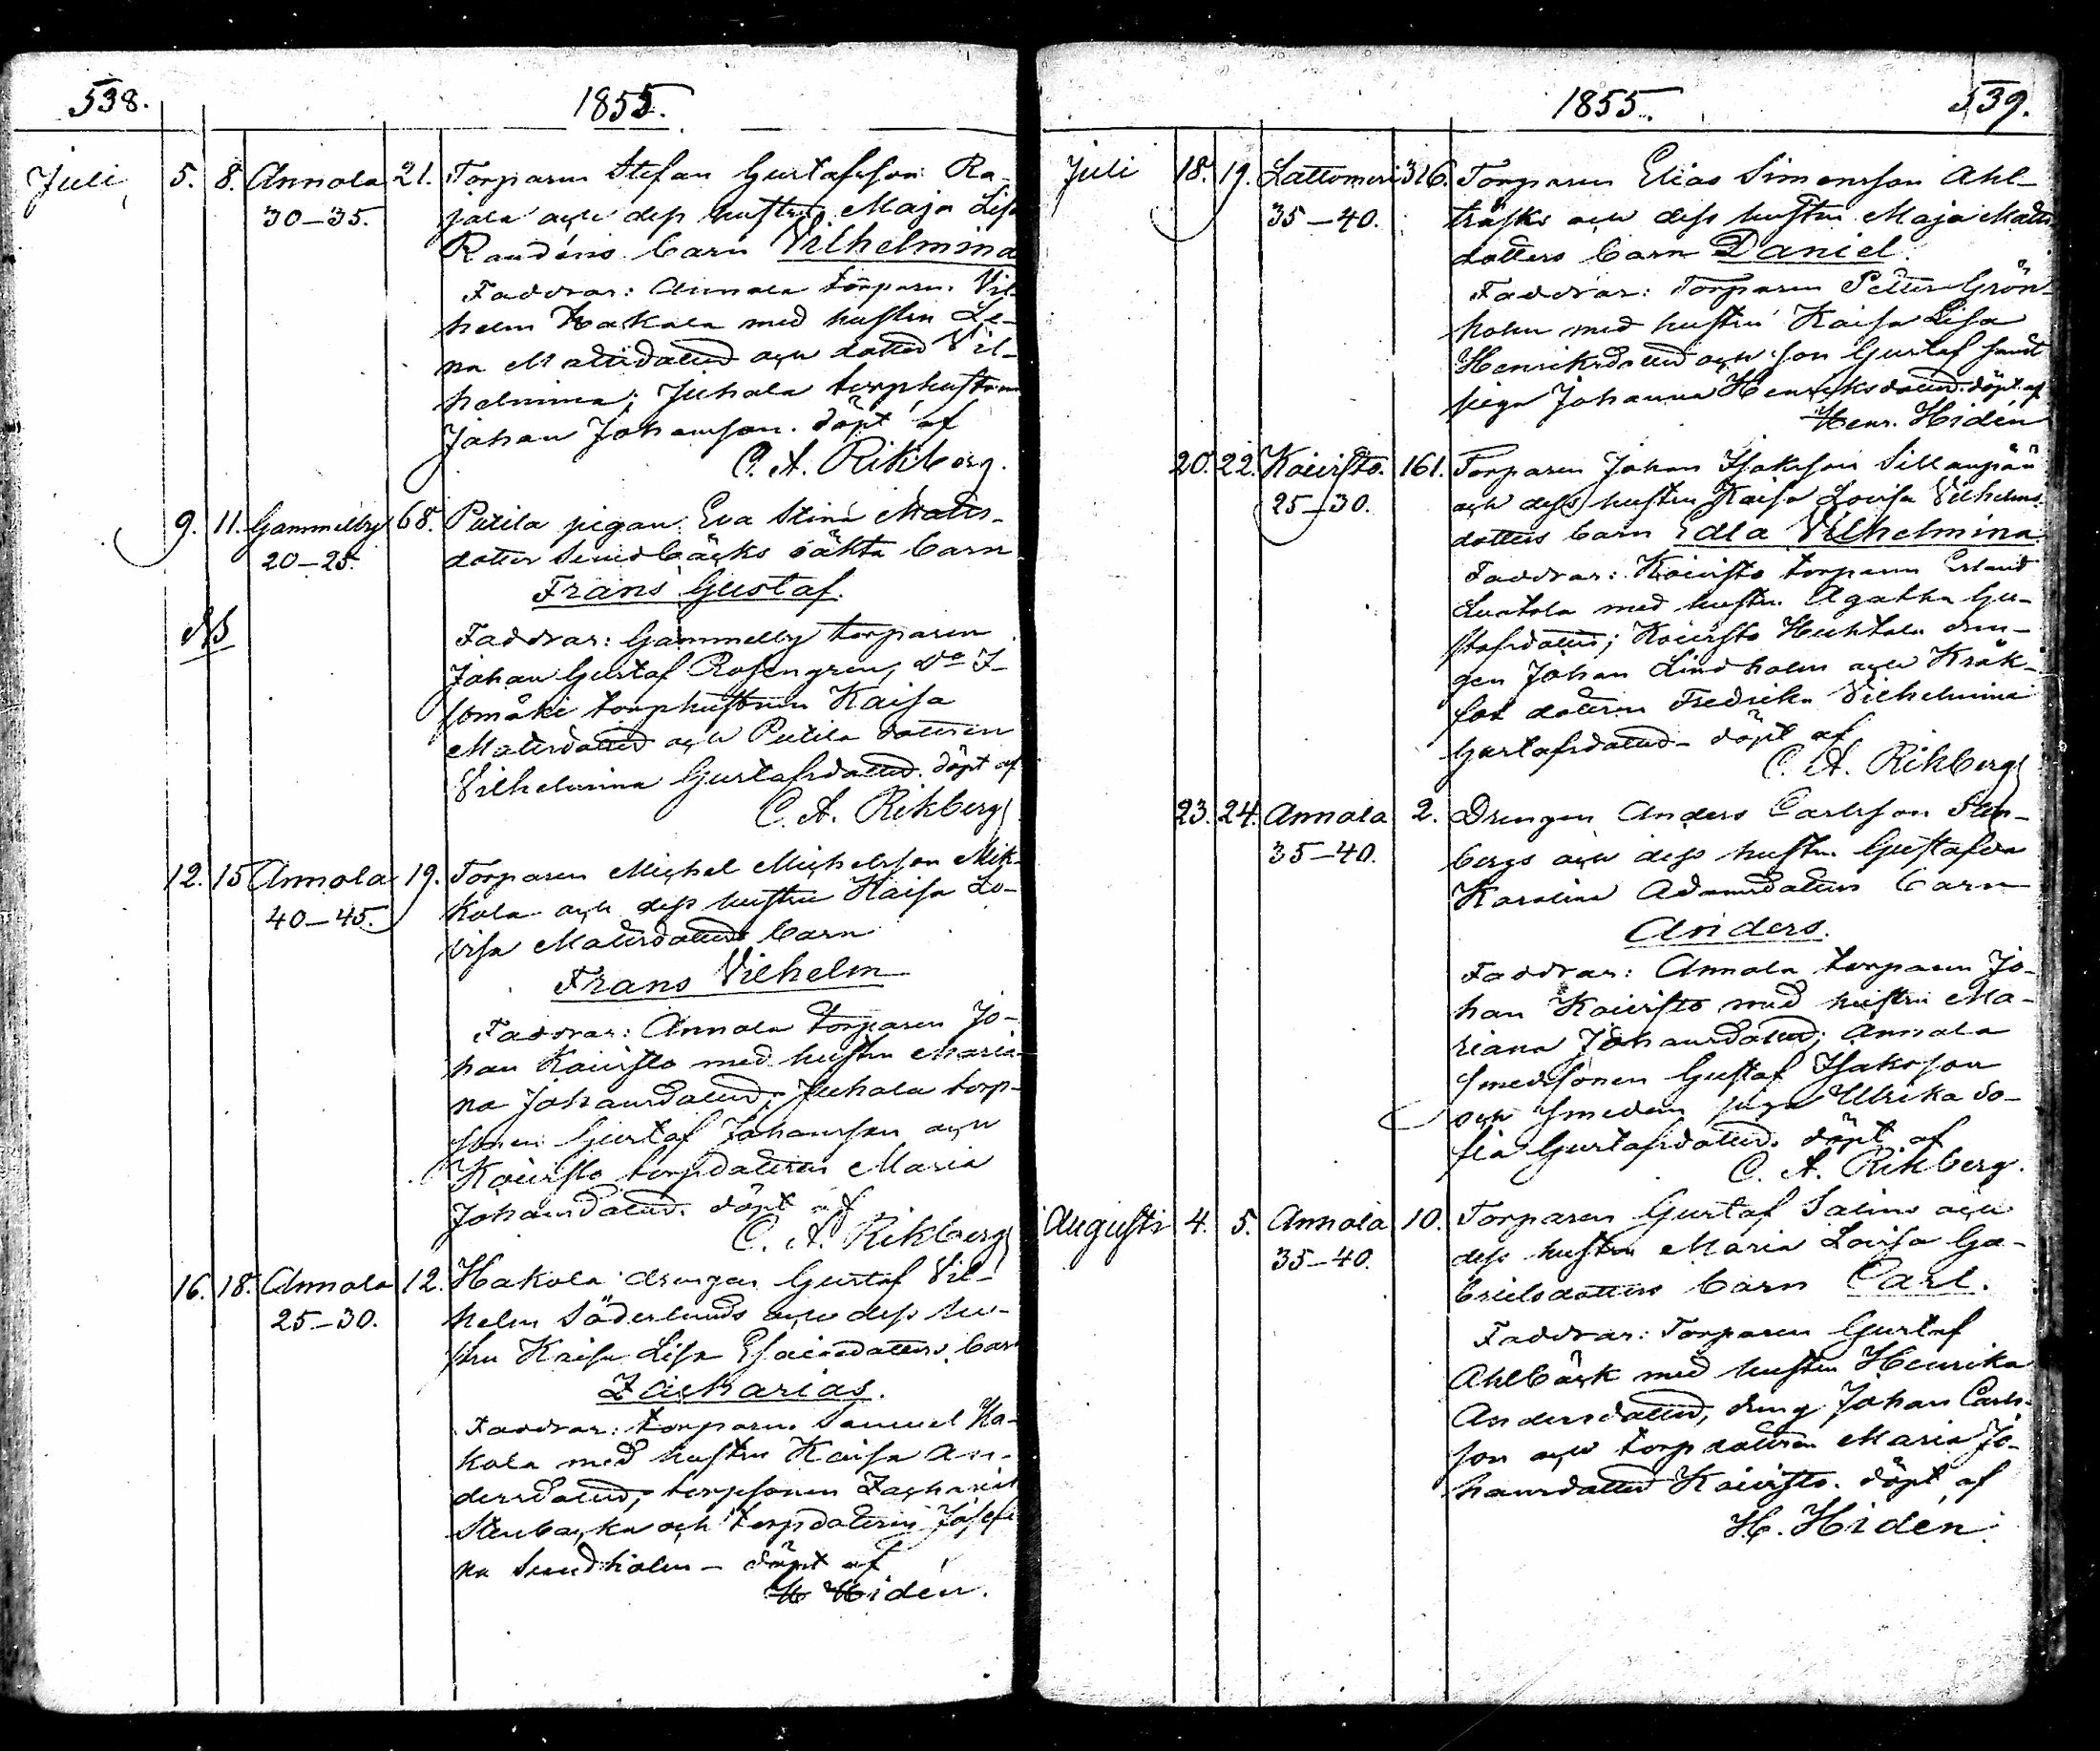 538.
1855.
Juli 5. 8. Annola 21. Torparen Stefan Gustafsson Ra-
30–35. jala och dess hustru Maja Lisa
Randéns barn Vilhelmina
Faddrar: Annola torparen Vil-
helm Hakala med hustru Le-
na Matsdotter och dotter Vil-
helmina; Juhala torphustrun
Johan Johansson. döpt af
C. A. Rikberg.
9. 11. Gammelby 68. Putila pigan Eva Stina Mats-
20–25. dotter Sundbäcks oäkta barn
Frans Gustaf.
NB
Faddrar: Gammelby torparen
Johan Gustaf Rosengren, do I-
somäki torphustrun Kaisa
Matsdotter och Putila dottren
Vilhelmina Gustafsdotter. döpt af
C. A. Rikberg
12. 15 Annola 19. Torparen Michel Michelsson Mik-
40–45. kola och dess hustru Kaisa Lo-
visa Matsdotters barn
Frans Vilhelm
Faddrar: Annola torparen Jo-
han Koivisto med hustru Maria-
na Johansdotter; Juhala torp-
sonen Gustaf Johansson och
Koivisto torpdottren Maria
Johansdotter. döpt af
C. A. Rikberg
16. 18. Annola 12. Hakola drengen Gustaf Vil-
25–30. helm Söderlunds och dess hu-
stru Kaisa Lisa Esaiasdotters barn
Zacharias.
Faddrar: torparen Samuel Ha-
kola med hustru Kaisa An-
dersdotter, torpsonen Zacharias
Stenbacka och torpdottren Josefi
na Sundholm – döpt af
H Hidén.
1855.
539.
Juli 18. 19. Lattomeri 316. Torparen Elias Simonsson Ahl-
35–40. träsks och dess hustru Maja Mats
dotters barn Daniel.
Faddrar: Torparen Petter Grön-
holm med hustru Kaisa Lisa
Henriksdotter och son Gustaf samt
piga Johanna Henriksdotter. döpt af
Henr. Hidén
20. 22. Koivisto. 161. Torparen Johan Isaksson Sillanpää
25–30. och dess hustru Kaisa Lovisa Vilhelms
dotters barn Edla Vilhelmina
Faddrar: Koivisto torparen Erland
Luotola med hustru Agatha Gu-
stafsdotter; Koivisto Huhtala dren-
gen Johan Lindholm och Kråk-
fot dottren Fredrika Vilhelmina
Gustafsdotter – döpt af
C. A. Rikberg
23. 24. Annola 2. Drengen Anders Carlsson Sten-
35–40. bergs och dess hustru Gustafva
Karolina Adamsdotters barn
Anders.
Faddrar: Annola torparen Jo-
han Koivisto med hustru Ma-
riana Johansdotter; Annola
smedsonen Gustaf Isaksson
och smedens piga Ulrika So-
fia Gustafsdotter. döpt af
C. A. Rikberg.
Augusti 4. 5. Annola 10. Torparen Gustaf Salins och
35–40. dess hustru Maria Lovisa Ga-
brielsdotters barn Carl.
Faddrar: Torparen Gustaf
Ahlbäck med hustru Henrika
Andersdotter, dreng Johan Carls-
son och torpdottren Maria Jo-
hansdotter Koivisto. döpt af
H. Hidén.